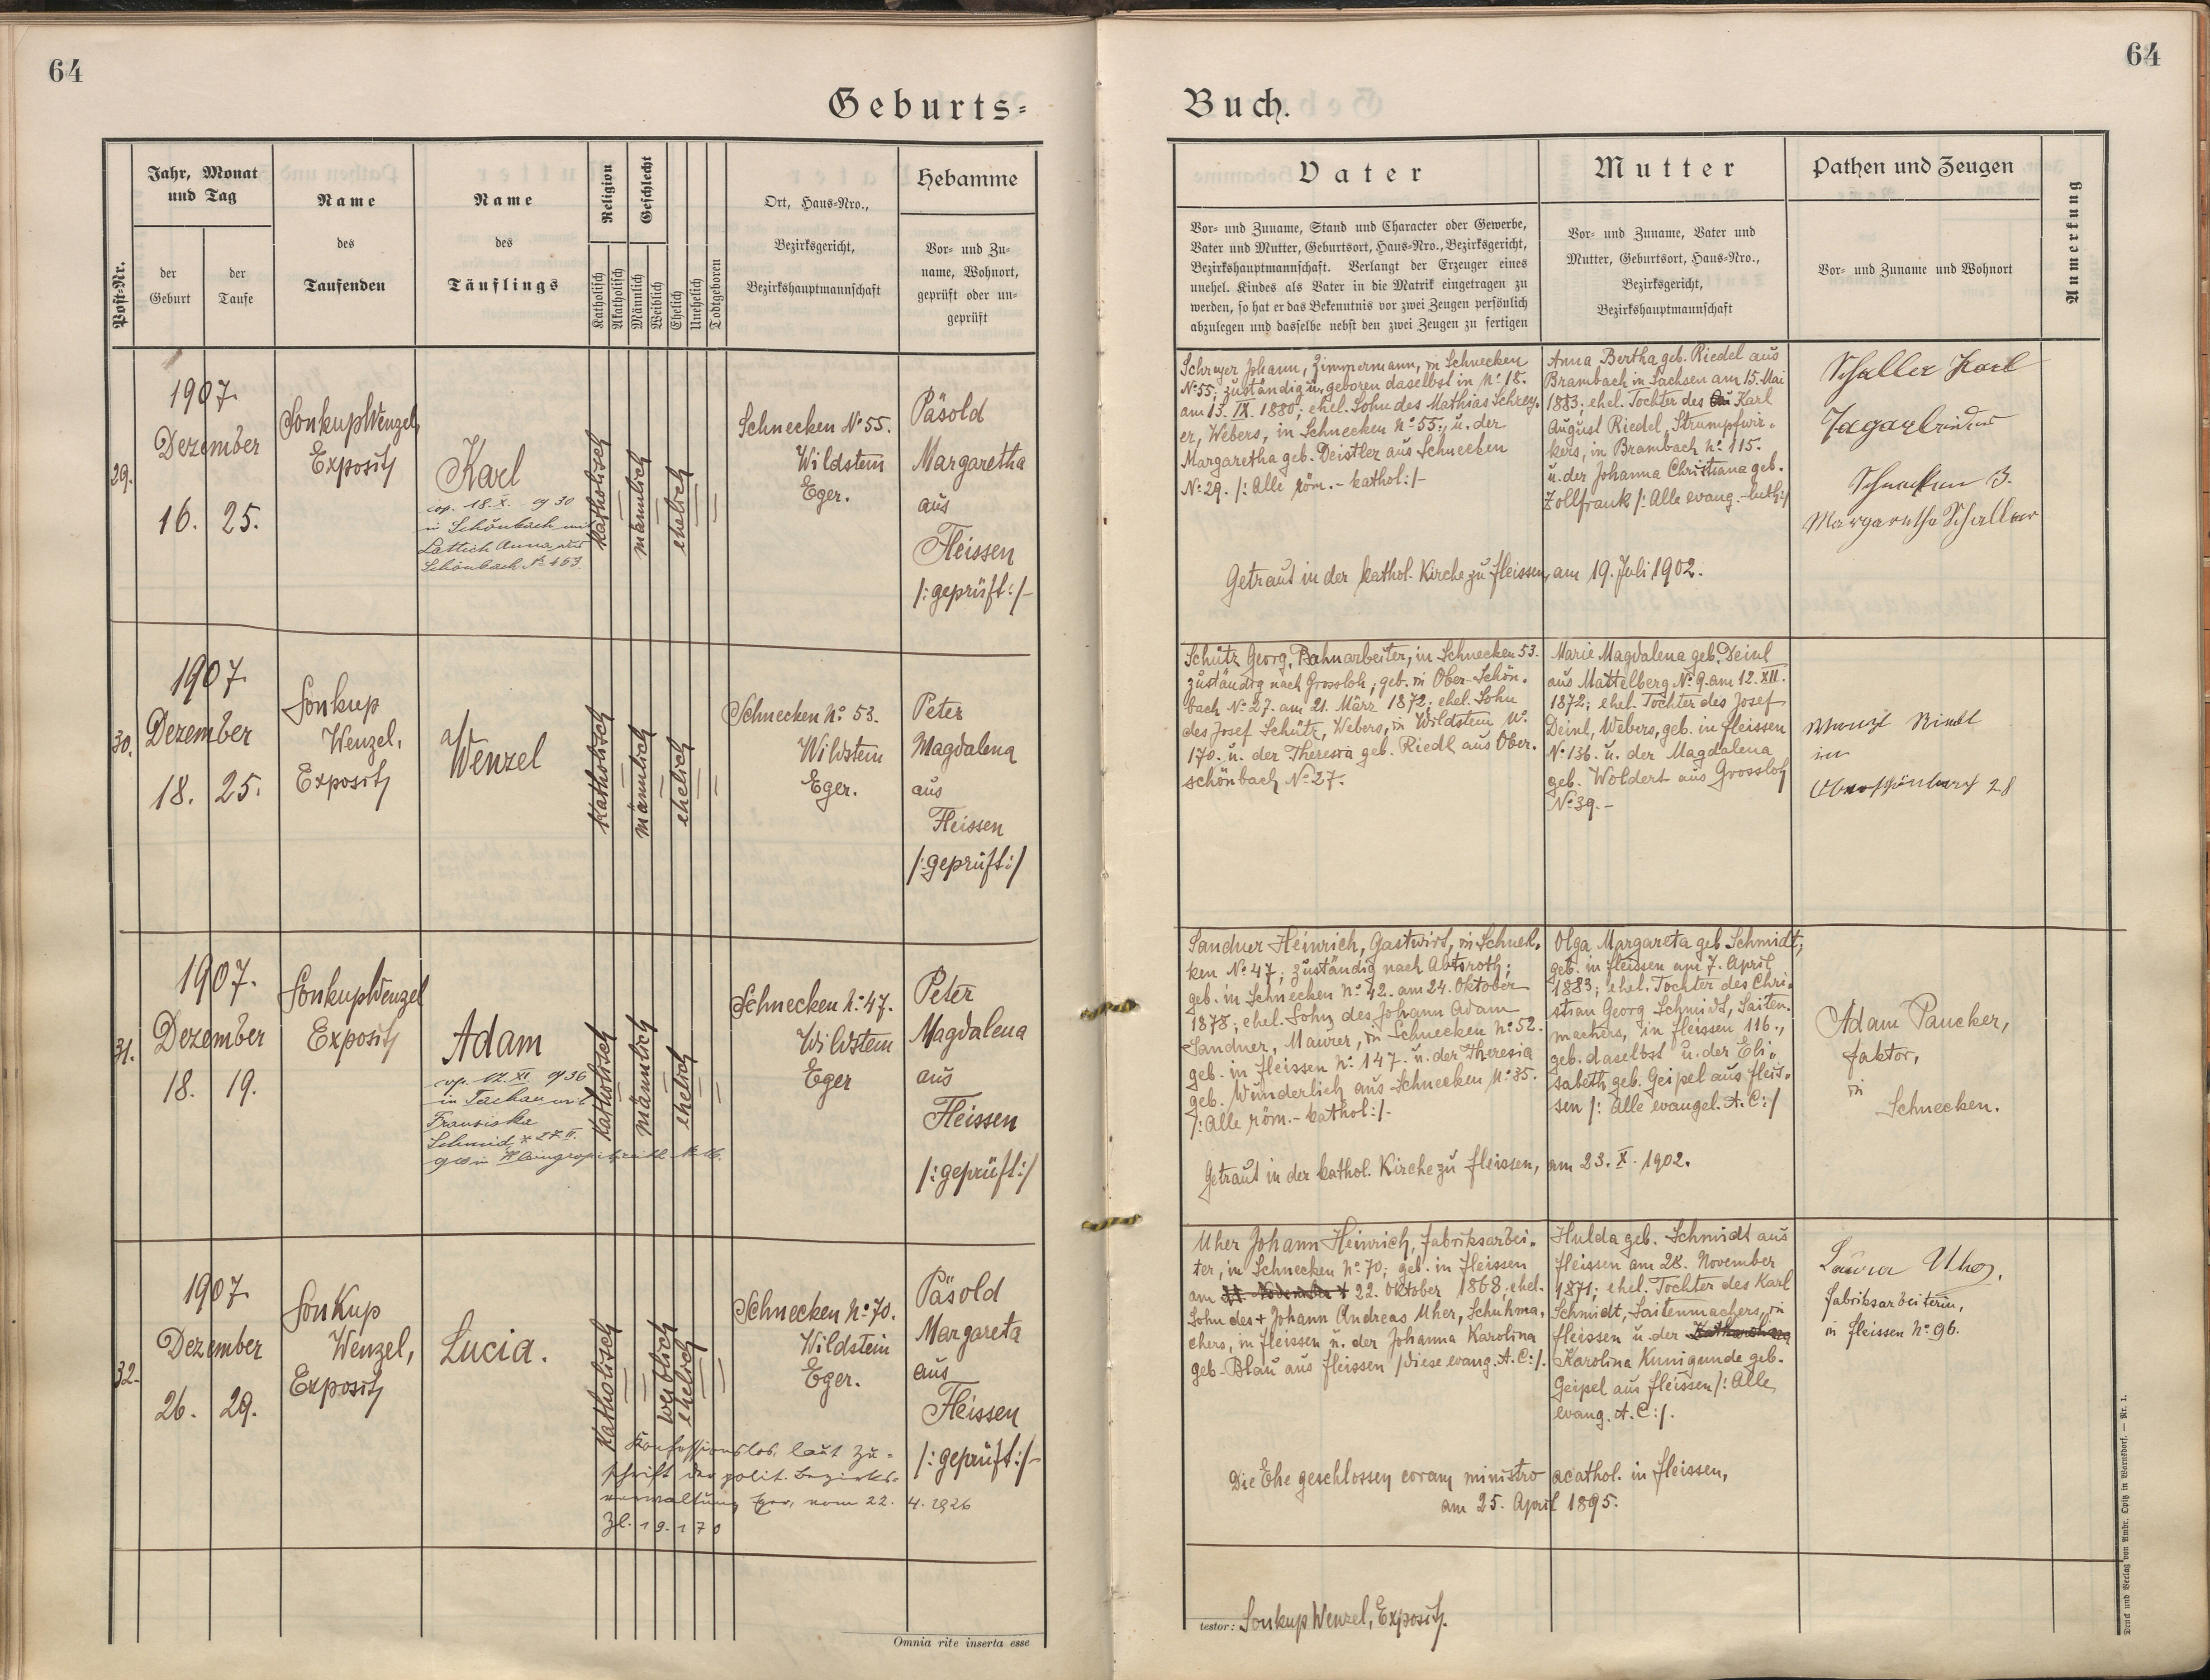 64
64
Geburts=
Buch.
Post-Nr.
Jahr, Monat
und Tag
der
Geburt
der
Taufe
Name
des
Taufenden
Name
des
Täuflings
Religion
Katholisch
Akatholisch
Geschlecht
Männlich
Weiblich
Ehelich
Unehelich
Todtgeboren
Ort, Haus=Nro.,
Bezirksgericht,
Bezirkshauptmannschaft
Hebamme
Vor= und Zu=
name, Wohnort,
geprüft oder un=
geprüft
Vater
Vor= und Zuname, Stand und Character oder Gewerbe,
Vater und Mutter, Geburtsort, Haus=Nro., Bezirksgericht,
Bezirkshauptmannschaft. Verlangt der Erzeuger eines
unehel. Kindes als Vater in die Matrik eingetragen zu
werden, so hat er das Bekenntnis vor zwei Zeugen persönlich
abzulegen und dasselbe nebst den zwei Zeugen zu fertigen
Mutter
Vor= und Zuname, Vater und
Mutter, Geburtsort, Haus=Nro.,
Bezirksgericht,
Bezirkshauptmannschaft
Pathen und Zeugen
Vor= und Zuname und Wohnort
Anmerkung
29.
1907.
Dezember
16. 25.
Sonkup Wenzel,
Exposit
Karl
cop. 18. X. 1930
in Schönbach mit
Lattich Anna aus
Schönbach No 453.
katholisch
männlich
ehelich
Schnecken No 55.
Wildstein
Eger.
Päsold
Margaretha
aus
Fleissen
/:geprüft:/-
Schreyer Johann, Zimmermann, in Schnecken
No 55; zuständig u. geboren daselbst in No 18.
am 13. IX. 1880; ehel. Sohn des Mathias Schrey=
er, Webers, in Schnecken No 55., u. der
Margaretha geb. Deistler aus Schnecken
No 29. /: Alle röm.-kathol:/-
Anna Bertha geb. Riedel aus
Brambach in Sachsen am 15. Mai
1883; ehel. Tochter des Karl
August Riedel, Strumpfwir=
kers, in Brambach No 115.
u. der Johanna Christiana geb.
Zollfrank /: Alle evang.-luth:/
Schaller Karl
Schnecken 3.
Margaretha Schaller
Getraut in der kathol. Kirche zu Fleissen, am 19. Juli 1902.
30.
1907.
Dezember
18. 25.
Sonkup
Wenzel,
Exposit
a/
Wenzel
katholisch
männlich
ehelich
Schnecken No 53.
Wildstein
Eger.
Peter
Magdalena
aus
Fleissen
/:geprüft:/
Schütz Georg, Bahnarbeiter, in Schnecken 53.
zuständig nach Grossloh; geb. in Ober-Schön=
bach No 27. am 21. März 1872; ehel. Sohn
des Josef Schütz, Webers, in Wildstein No
170. u. der Theresia geb. Riedl aus Ober=
schönbach No 27.
Marie Magdalena geb. Deinl
aus Mattelberg No 9. am 12. XII.
1872; ehel. Tochter des Josef
Deinl, Webers, geb. in Fleissen
No 136. u. der Magdalena
geb. Woldert aus Grossloh
No 39.-
Wenzl Riedl
in
Oberschönbach 28
31.
1907.
Dezember
18. 19.
Sonkup Wenzel
Exposit
Adam
cop. 12. XI. 1936
in Tachau mit
Franziska
Schmid * 27. II.
katholisch
männlich
ehelich
Schnecken No 47.
Wildstein
Eger
Peter
Magdalena
aus
Fleissen
/:geprüft:/
Sandner Heinrich, Gastwirt, in Schnek=
ken No 47; zuständig nach Abtsroth;
geb. in Schnecken No 42. am 24. Oktober
1878; ehel. Sohn des Johann Adam
Sandner, Maurer, in Schnecken No 52.
geb. in Fleissen No 147. u. der Theresia
geb. Wunderlich aus Schnecken No 35.
/: Alle röm.-kathol:/-
Olga Margareta geb Schmidt;
geb. in Fleissen am 7. April
1883; ehel. Tochter des Chri=
stian Georg Schmidt, Saiten=
machers, in Fleissen 116.,
geb. daselbst u. der Eli=
sabeth geb. Geipel aus Fleis=
sen /: Alle evangel. A. C:/
Adam Paucker,
Faktor,
in
Schnecken.
Getraut in der kathol. Kirche zu Fleissen, am 23. X. 1902.
32.
1907
Dezember
26. 29.
Sonkup
Wenzel,
Exposit
Lucia.
katholisch
weiblich
ehelich
Schnecken No 70.
Wildstein
Eger.
Päsold
Margareta
aus
Fleissen
/:geprüft:/-
Konfessionslos, laut Zu=
schrift der polit. Bezirks=
verwaltung Eger, vom 22. 4. 1926
Zl. 19.170
Uher Johann Heinrich, Fabriksarbei=
ter, in Schnecken No 70; geb. in Fleissen
am 22. Oktober 1868; ehel.
Sohn des + Johann Andreas Uher, Schuhma=
chers, in Fleissen u. der Johanna Karolina
geb. Blau aus Fleissen /diese evang. A. C:/.
Hulda geb. Schmidt aus
Fleissen am 28. November
1871; ehel. Tochter des Karl
Schmidt, Saitenmachers, in
Fleissen u. der
Karolina Kunigunde geb.
Geipel aus Fleissen /: Alle
evang. A. C:/.
Laura Uher,
Fabriksarbeiterin,
in Fleissen No 96.
Die Ehe geschlossen coram ministro acathol. in Fleissen,
am 25. April 1895.
Omnia rite inserta esse
testor: Sonkup Wenzel, Exposit.
Druck und Verlag von Ambr. Opitz in Warnsdorf. — Nr. 1.